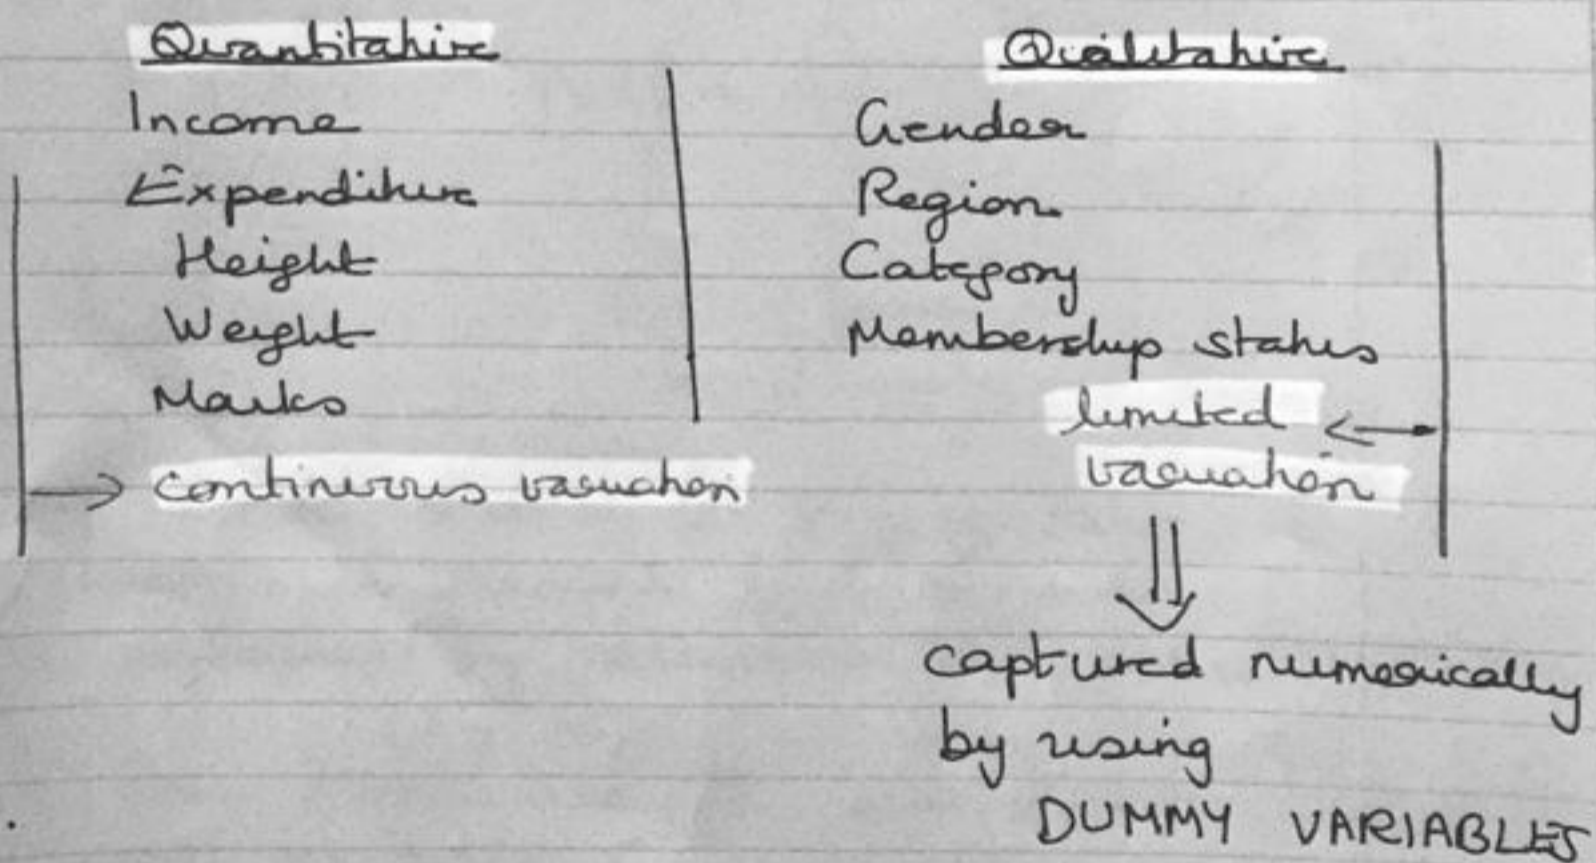 Quantitative
Income
Expenditure
Height
Weight
Marks
→ continuous variation
Qualitative
Gender
Region
Category
Membership status
limited ←
variation
⇓
captured numerically
by using
DUMMY VARIABLES